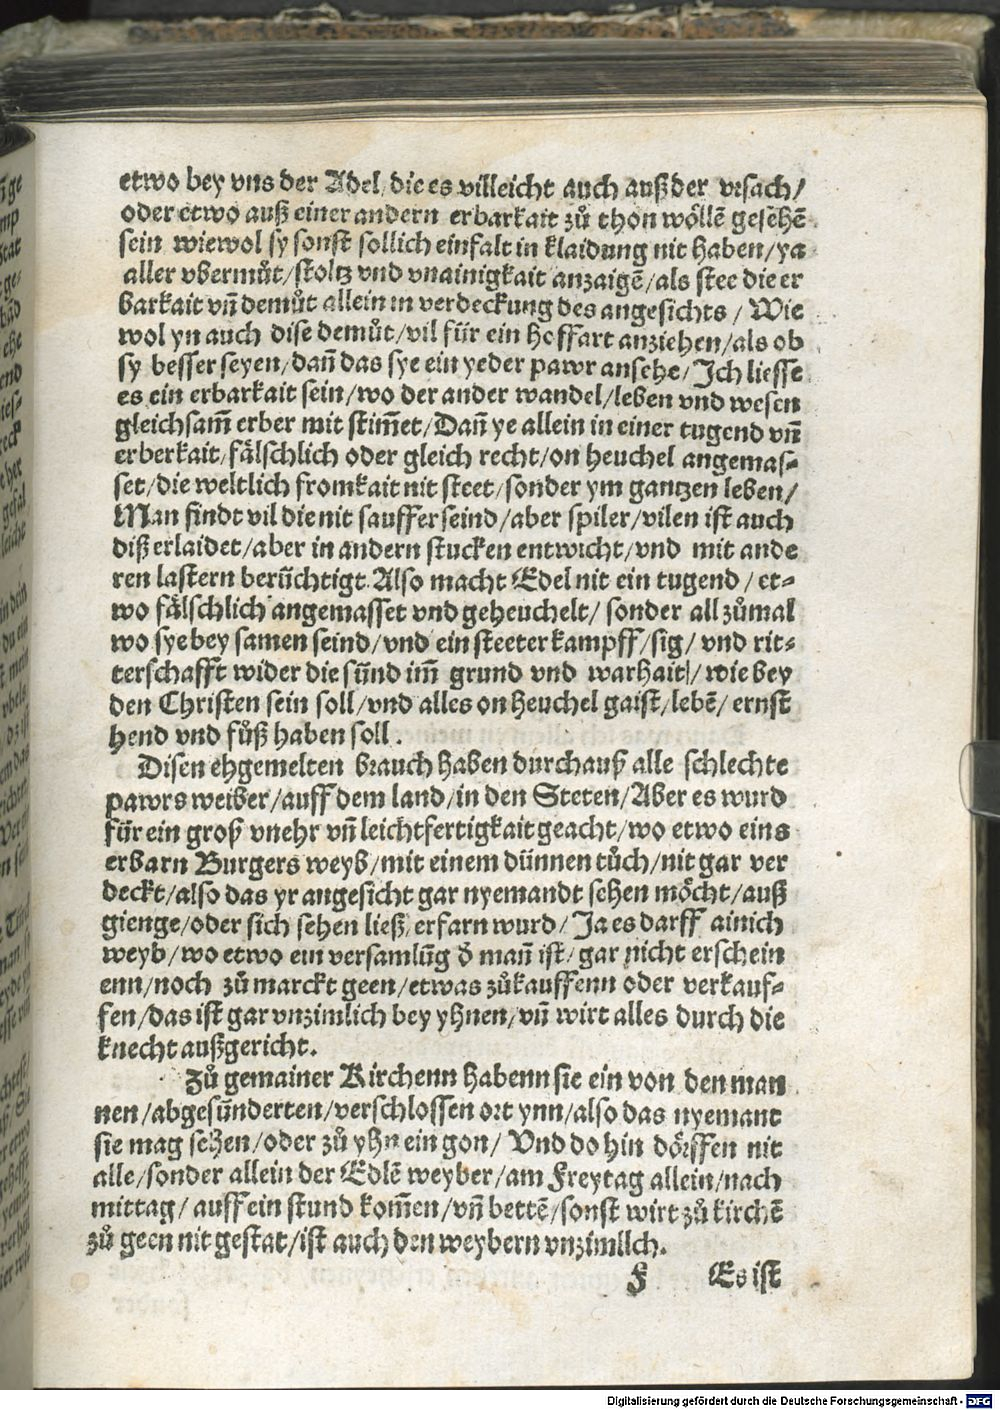 etwo bey vns der Adel/die es villeicht auch außder vrsach/
oder etwo auß einer andern erbarkait zů thon wöllē gesēhē
sein wiewol sy sonst sollich einfalt in klaidung nit haben/ya
aller vbermůt/stoltz vnd vnainigkait anzaigē/als stee die er
barkait vñ demůt allein in verdeckung des angesichts / Wie
wol yn auch dise demůt/vil für ein hoffart anziehen/als ob
sy besser seyen/dañ das sye ein yeder pawr ansehe/Ich liesse
es ein erbarkait sein/wo der ander wandel/leben vnd wesen
gleichsam̃ erber mit stim̃et/Dañ ye allein in einer tugend vñ
erberkait/fälschlich oder gleich recht/on heuchel angemas⸗
set/die weltlich fromkait nit steet/sonder ym gantzen leben/
Man findt vil die nit sauffer seind/aber spiler/vilen ist auch
diß erlaidet/aber in andern stucken entwicht/vnd mit ande
ren lastern berüchtigt Also macht Edel nit ein tugend / et⸗
wo fälschlich angemasset vnd geheuchelt/ sonder all zůmal
wo sye bey samen seind/vnd ein steeter kampff/sig/ vnd rit⸗
terschafft wider die sünd im̃ grund vnd warhait/wie bey
den Christen sein soll/vnd alles on heuchel gaist/lebē/ ernst
hend vnd fůß haben soll.
Disen ehgemelten brauch haben durchauß alle schlechte
pawrs weiber/auff dem land/in den Steten/Aber es wurd
für ein groß vnehr vñ leichtfertigkait geacht/wo etwo eins
erbarn Burgers weyb/mit einem dünnen tůch/nit gar ver
deckt/also das yr angesicht gar nyemandt sehen möcht/auß
gienge/oder sich sehen ließ/erfarn wurd/ Ja es darff ainich
weyb/wo etwo ein versamlūg ð mañ ist/gar nicht erschein
enn/noch zů marckt geen/etwas zůkauffenn oder verkauf⸗
fen/das ist gar vnzimlich bey yhnen/vñ wirt alles durch die
knecht außgericht.
Zů gemainer Kirchenn habenn sie ein von den man
nen/abgesünderten/verschlossen ort ynn/also das nyemant
sie mag sehen/oder zů yhn ein gon/ Vnd do hin dörffen nit
alle/sonder allein der Edlē weyber/am Freytag allein/nach
mittag/ auff ein stund kom̃en/vñ bettē/sonst wirt zů kirchē
zů geen nit gestat/ist auch den weybern vnzimlich.
F Es ist
Digitalisierung gefördert durch die Deutsche Forschungsgemeinschaft - DFG